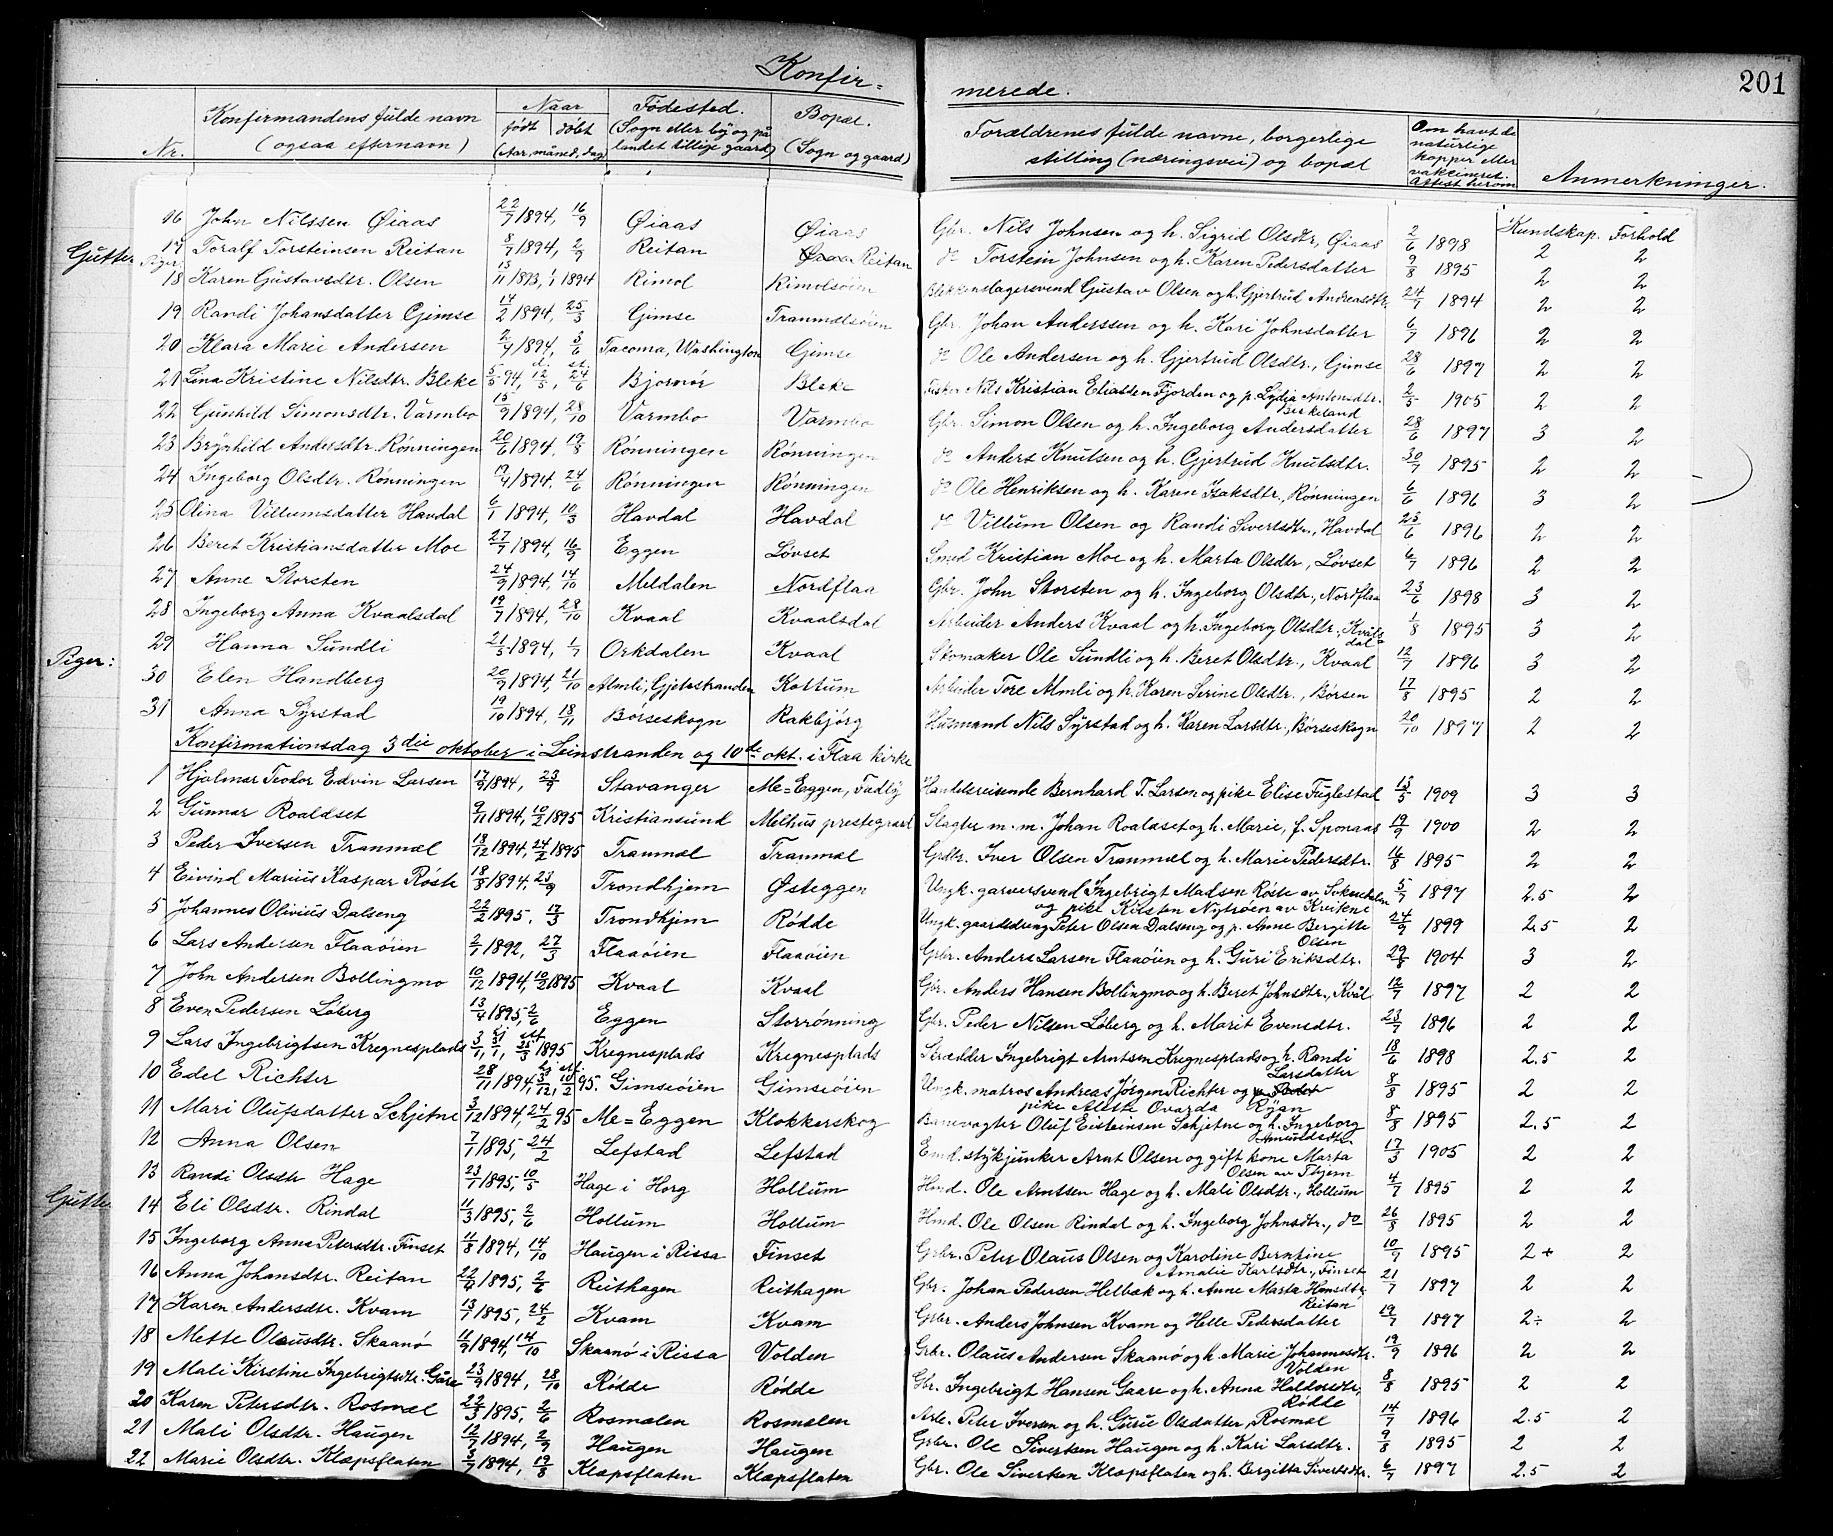 Konfir- merede. 201
Nr. | Konfirmandens fulde navn (ogsaa efternavn) | Naar født | døbt (Aar, måned, dag) | Fødested. (Sogn eller by og på landet tillige gaard) | Bopæl. (Sogn og gaard) | Forældrenes fulde navne, borgerlige stilling (næringsvei) og bopæl | Om havt de naturlige kopper eller vakcineret. Attest herom | Anmerkninger.
Kundskap. Forhold
Gutter
16 John Nilssen Øiaas 22/7 1894, 16/9 Øiaas Øiaas Gbr. Nils Johnsen og h. Sigrid Olsdtr, Øiaas 2/6 1898 2 2
17 Toralf Torsteinsen Reitan 8/7 1894, 2/9 Reitan Reitan do Torstein Johnsen og h. Karen Pedersdatter 9/8 1895 2 2
Piger
18 Karen Gustavsdtr. Olsen 13/11 1893, 1/1 1894 Rimol Rimolsøien Blikkenslagersvend Gustav Olsen og h. Gjertrud Andreasdtr. 24/7 1894 2 2
19 Randi Johansdatter Gimse 14/2 1894, 25/3 Gimse Tranmælsøien Gbr. Johan Anderssen og h. Kari Johnsdatter 6/7 1896 2 2
20 Klara Marie Andersen 2/4 1894, 3/6 Tacoma, Washington Gimse do Ole Andersen og h. Gjertrud Olsdtr., Gimse 28/6 1897 2 2
21 Lina Kristine Nilsdtr. Bleke 5/5 94, 12/5, 24/6 Bjørnør Bleke Fisker Nils Kristian Eliassen Fjorden og p. Lydia Antonsdtr. Berkeland 2/5 1905 2 2
22 Gunhild Simonsdtr. Varmbo 15/9 1894, 28/10 Varmbo Varmbo Gbr. Simon Olsen og h. Ingeborg Andersdatter 28/6 1897 3 2
23 Brynhild Andersdtr. Rønningen 20/6 1894, 19/8 Rønningen Rønningen do Anders Knutsen og h. Gjertrud Knutsdtr. 30/7 1895 2 2
24 Ingeborg Olsdtr. Rønningen 17/4 1894, 24/6 Rønningen Rønningen do Ole Henriksen og h. Karen Isaksdtr., Rønningen 6/6 1896 3 2
25 Olina Villumsdatter Havdal 6/1 1894, 10/3 Havdal Havdal do Villum Olsen og Randi Sivertsdtr., Havdal 23/6 1896 2 2
26 Beret Kristiansdatter Moe 27/7 1894, 16/9 Eggen Løvset Smed Kristian Moe og h. Marta Olsdtr., Løvset 6/7 1896 2 2
27 Anne Storsten 24/9 1894, 14/10 Meldalen Nordflaa Gbr. John Storsten og h. Ingeborg Olsdtr., Nordflaa 23/6 1898 3 2
28 Ingeborg Anna Kvaalsdal 19/7 1894, 28/10 Kvaal Kvaalsdal Arbeider Anders Kvaal og h. Ingeborg Olsdtr., Kvålsdal 1/8 1895 3 2
29 Hanna Sundli 21/5 1894, 1/7 Orkdalen Kvaal Skomaker Ole Sundli og h. Beret Olsdtr., Kvaal 12/7 1896 3 2
Piger:
30 Elen Handberg 20/9 1894, 21/10 Almli, Gjetostranden Kottum Arbeider Tore Almli og h. Karen Serine Olsdtr., Børsen 17/8 1895 2 2
31 Anna Syrstad 19/10 1894, 18/11 Børseskogn Rakbjørg Husmand Nils Syrstad og h. Karen Larsdtr., Børseskogn 20/10 1897 2 2
Konfirmationsdag 3die oktober i Leinstranden og 10de okt. i Flaa kirke
1 Hjalmar Teodor Edvin Larsen 17/9 1894, 23/9 Stavanger Me=Eggen, Fadlig Handelsreisende Bernhard T. Larsen og pike Elise Fuglestad 13/5 1909 3 3
2 Gunnar Roaldset 9/11 1894, 10/2 1895 Kristiansund Melhus prestegaard Slagter m. m. Johan Roaldset og h. Marie, f. Sponaas 19/9 1900 2 2
3 Peder Iversen Tranmæl 18/12 1894, 24/2 1895 Tranmæl Tranmæl Grdbr. Iver Olsen Tranmæl og h. Marie Pedersdtr. 16/8 1895 2 2
4 Eivind Marius Kaspar Røste 18/8 1894, 23/9 Trondhjem Østeggen Ungk. garversvend Ingebrigt Madsen Røste av Soknedalen og pike Kirsten Nytrøen av Kvikne 5/7 1897 2.5 2
5 Johannes Olivius Dalseng 22/2 1895, 17/3 Trondhjem Rødde Ungk. gaardsdreng Peter Olsen Dalseng og p. Anne Bergitte Olsen 24/9 1899 2.5 2
6 Lars Andersen Flaaøien 2/7 1892, 27/3 Flaaøien Flaaøien Grbr. Anders Larsen Flaaøien og h. Guri Eriksdtr. 29/8 1904 3 2
7 John Andersen Bollingmo 10/12 1894, 10/2 1895 Kvaal Kvaal Gbr. Anders Hansen Bollingmo og h. Beret Johnsdtr., Kvål 12/7 1897 2 2
8 Even Pedersen Løberg 13/4 1895, 2/6 Eggen Storrønning Gbr. Peder Nilsen Løberg og h. Marit Evensdtr. 23/7 1896 2 2
9 Lars Ingebrigtsen Kregnesplads 3/1, 1895 Kregnesplads Kregnesplads Skrædder Ingebrigt Arntsen Kregnesplads og h. Randi Larsdatter 18/6 1898 2.5 2
10 Edel Richter 28/11 1894, 3/12, 10/2 95. Gimseøien Gimseøien Ungk. matros Andreas Jørgen Richter og pike Alette Ovarda Ryan 8/8 1895 2 2
11 Mari Olufsdatter Schjetne 3/12 1894, 24/2 95 Me=Eggen Klokkerskog Banevogter Oluf Eisteinsen Schjetne og h. Ingeborg Amundsdtr. 8/8 1895 2.5 2
12 Anna Olsen 7/1 1895, 24/2 Lefstad Lefstad Emd. stykjunker Arnt Olsen og gift kone Marta Olsen av Thjem 17/3 1905 2 2
13 Randi Olsdtr Hage 23/1 1895, 10/5 Hage i Horg Hollum Hmd. Ole Arntsen Hage og h. Mali Olsdtr., Hollum 4/7 1895 2 2
Gutter
14 Eli Olsdtr. Rindal 11/3 1895, 2/6 Hollum Hollum Hmd. Ole Olsen Rindal og h. Ingeborg Johnsdtr., do 26/8 1895 2 2
15 Ingeborg Anna Petersdtr. Finset 11/8 1894, 14/10 Haugen i Rissa Finset Grbr. Peter Olaus Olsen og Karoline Berntine Amalie Karlsdtr., Finset 10/9 1895 2+ 2
16 Anna Johansdtr. Reitan 22/4 1895, 2/6 Reithagen Reithagen Gbr. Johan Pedersen Helbæk og h. Anne Marta Hansdtr. Reitan 21/7 1897 2 2
17 Karen Andersdtr. Kvam 13/1 1895, 24/2 Kvam Kvam Grbr. Anders Johnsen Kvam og Helle Pedersdatter 19/7 1897 2÷ 2
18 Mette Olausdtr. Skaanø 11/9 1894, 14/10 Skaanø i Rissa Volden Grbr. Olaus Andersen Skaanø og h. Marie Johannesdtr. Volden 19/9 1896 2 2
19 Mali Kirstine Ingebrigtsdtr. Gåre 23/9 1894, 28/10 Rødde Rødde Gbr. Ingebrigt Hansen Gaare og h. Anna Haldorsdtr, Rødde 8/8 1895 2 2
20 Karen Petersdtr. Rosmæl 22/3 1895, 2/6 Rosmælen Rosmælen Arb. Peter Iversen og h. Gurie Olsdatter, Rosmæl 14/7 1896 2.5 2
21 Mali Olsdtr. Haugen 12/7 1894, 2/9 Haugen Haugen Grbr. Ole Sivertsen Haugen og h. Kari Larsdtr. 9/8 1895 2 2
22 Marie Olsdtr. Klæpsflaten 3/7 1894, 19/8 Klæpsflaten Klæpsflaten Gbr. Ole Sivertsen Klæpsflaten og h. Bergitta Sivertsdtr. 6/7 1897 2.5 2